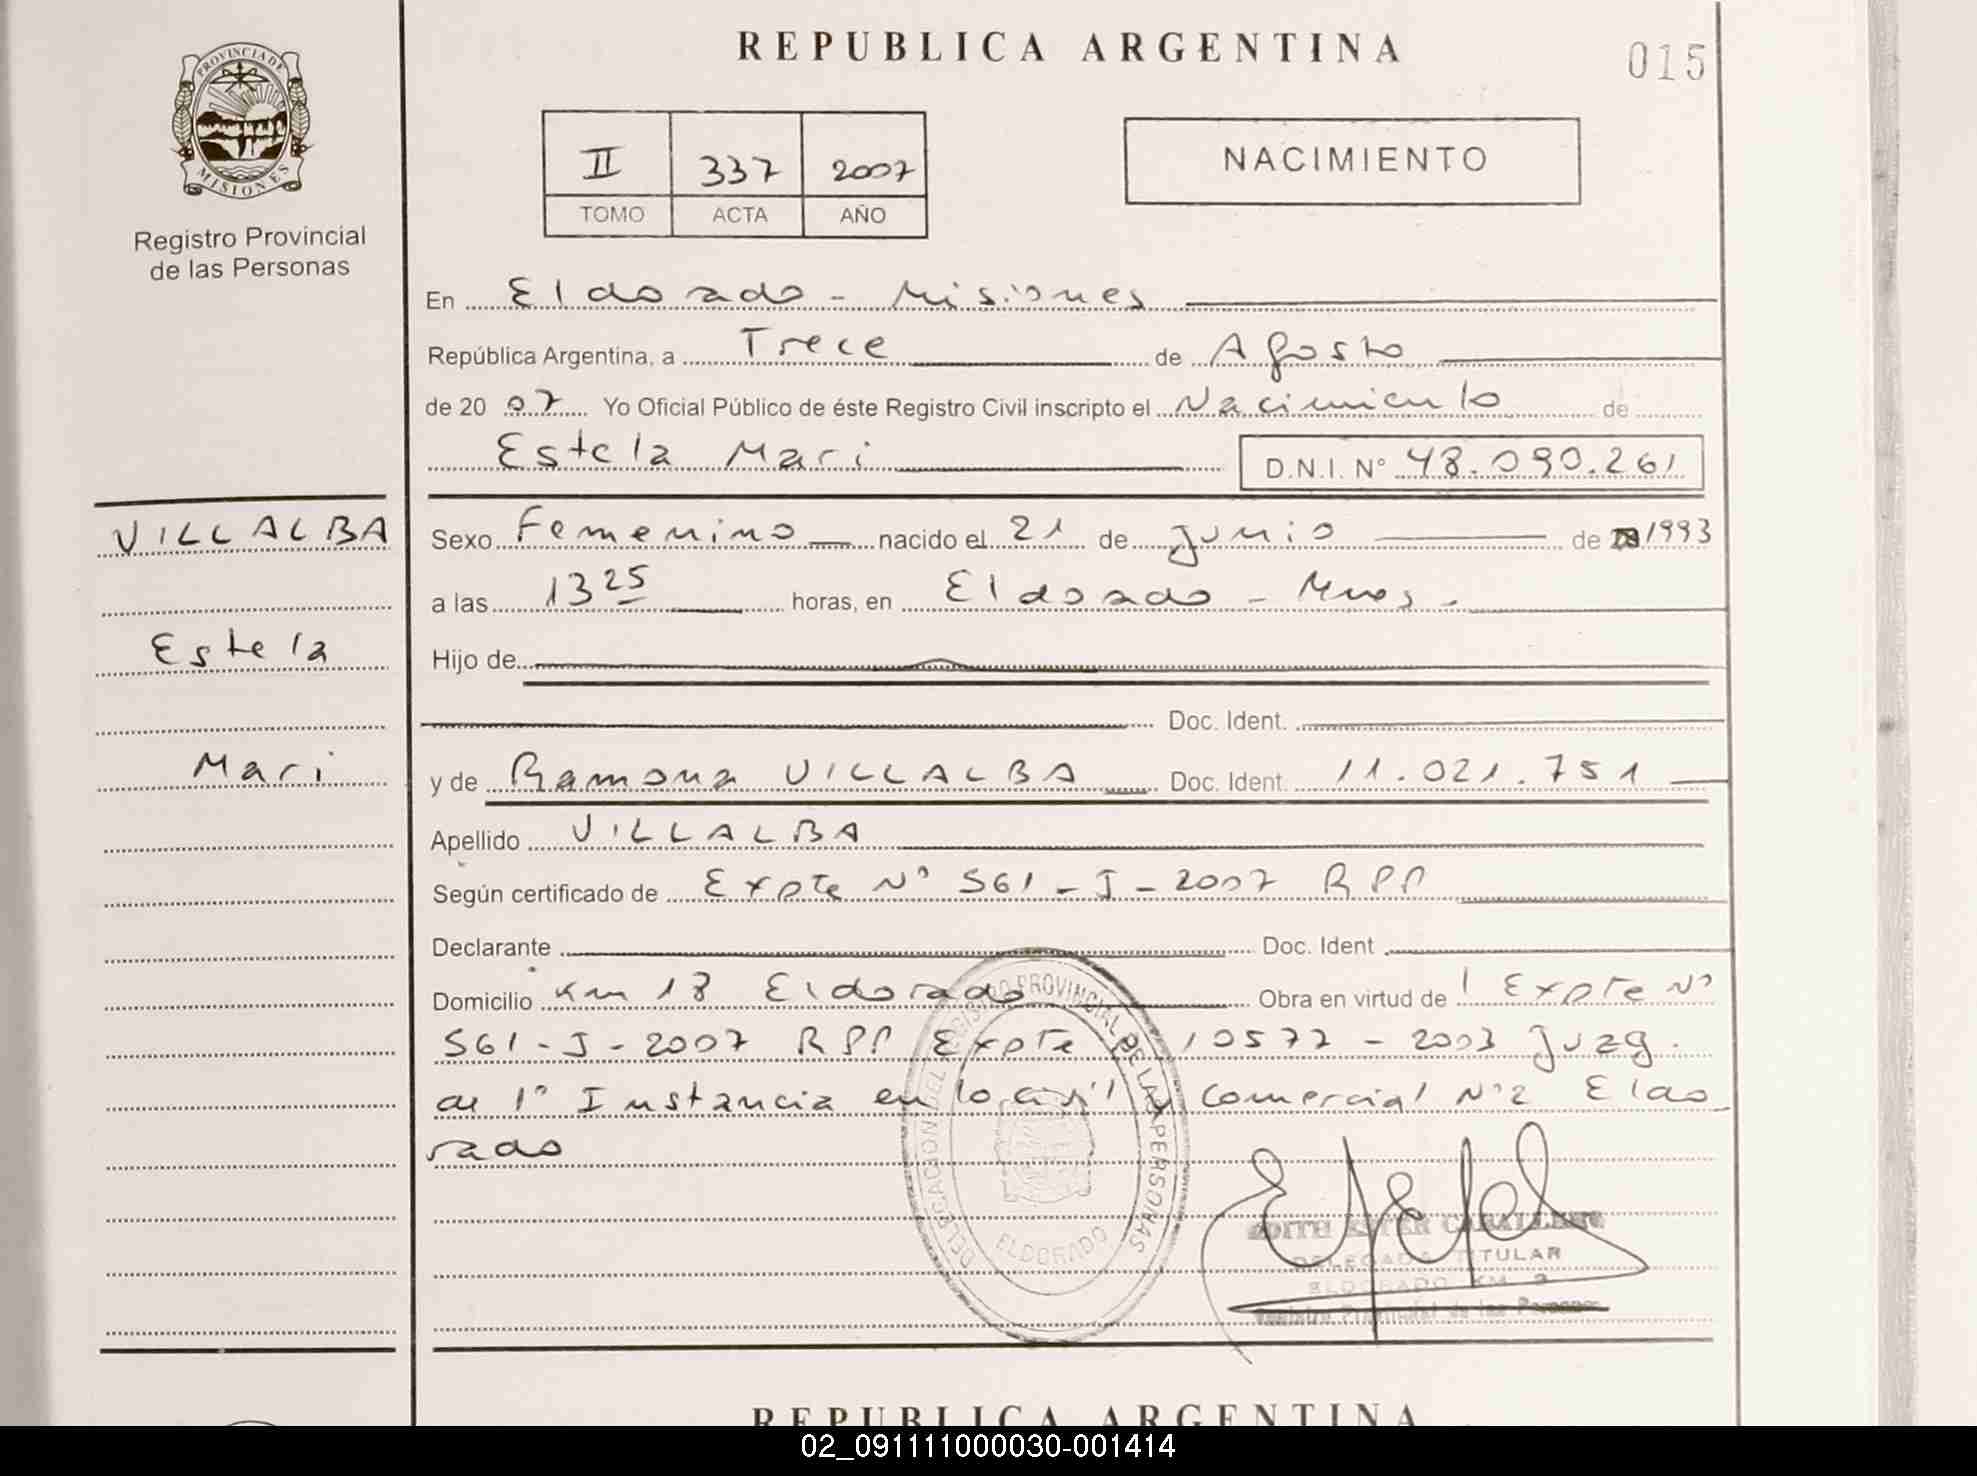 REPUBLICA ARGENTINA
015
PROVINCIA DE
MISIONES
Registro Provincial
de las Personas
II 337 2007
TOMO ACTA AÑO
NACIMIENTO
En Eldorado - Misiones
República Argentina, a Trece de Agosto
de 20 07 Yo Oficial Público de éste Registro Civil inscripto el Nacimiento de
Estela Mari D.N.I. Nº 48.090.261
VILLALBA
Estela
Mari
Sexo Femenino nacido el 21 de Junio de 1993
a las 13 25 horas, en Eldorado - Mnes.
Hijo de
Doc. Ident.
y de Ramona VILLALBA Doc. Ident. 11.021.751
Apellido VILLALBA
Según certificado de Expte Nº 561-I-2007 RPP
Declarante Doc. Ident
Domicilio Km 18 Eldorado Obra en virtud de Expte Nº
561-I-2007 RPP Expte 10577-2003 Juzg.
de 1º Instancia en lo civil y Comercial Nº2 Eldo
rado
DELEGACION DEL REGISTRO PROVINCIAL DE LAS PERSONAS
ELDORADO
EDITH ESTER CABALLERO
DELEGADA TITULAR
ELDORADO KM.
Registro Provincial de las Personas
REPUBLICA ARGENTINA
02_091111000030-001414